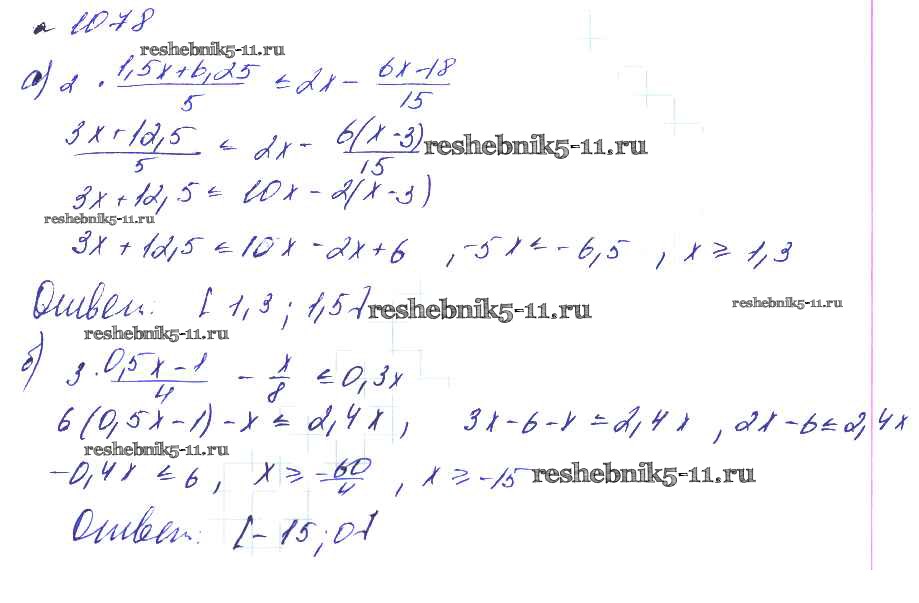 № 1078
reshebnik5-11.ru
а) 2 · (1,5x+6,25)/5 ≤ 2x − (6x−18)/15
(3x+12,5)/5 ≤ 2x − 6(x−3)/15 reshebnik5-11.ru
3x+12,5 ≤ 10x − 2(x−3)
reshebnik5-11.ru
3x+12,5 ≤ 10x − 2x+6 , −5x ≤ −6,5 , x ≥ 1,3
Ответ: [1,3 ; 1,5] reshebnik5-11.ru reshebnik5-11.ru
reshebnik5-11.ru
б) 3 · (0,5x−1)/4 − x/8 ≤ 0,3x
6(0,5x−1)−x ≤ 2,4x , 3x−6−x ≤ 2,4x , 2x−6 ≤ 2,4x
reshebnik5-11.ru
−0,4x ≤ 6 , x ≥ −60/4 , x ≥ −15 reshebnik5-11.ru
Ответ: [−15 ; 0]